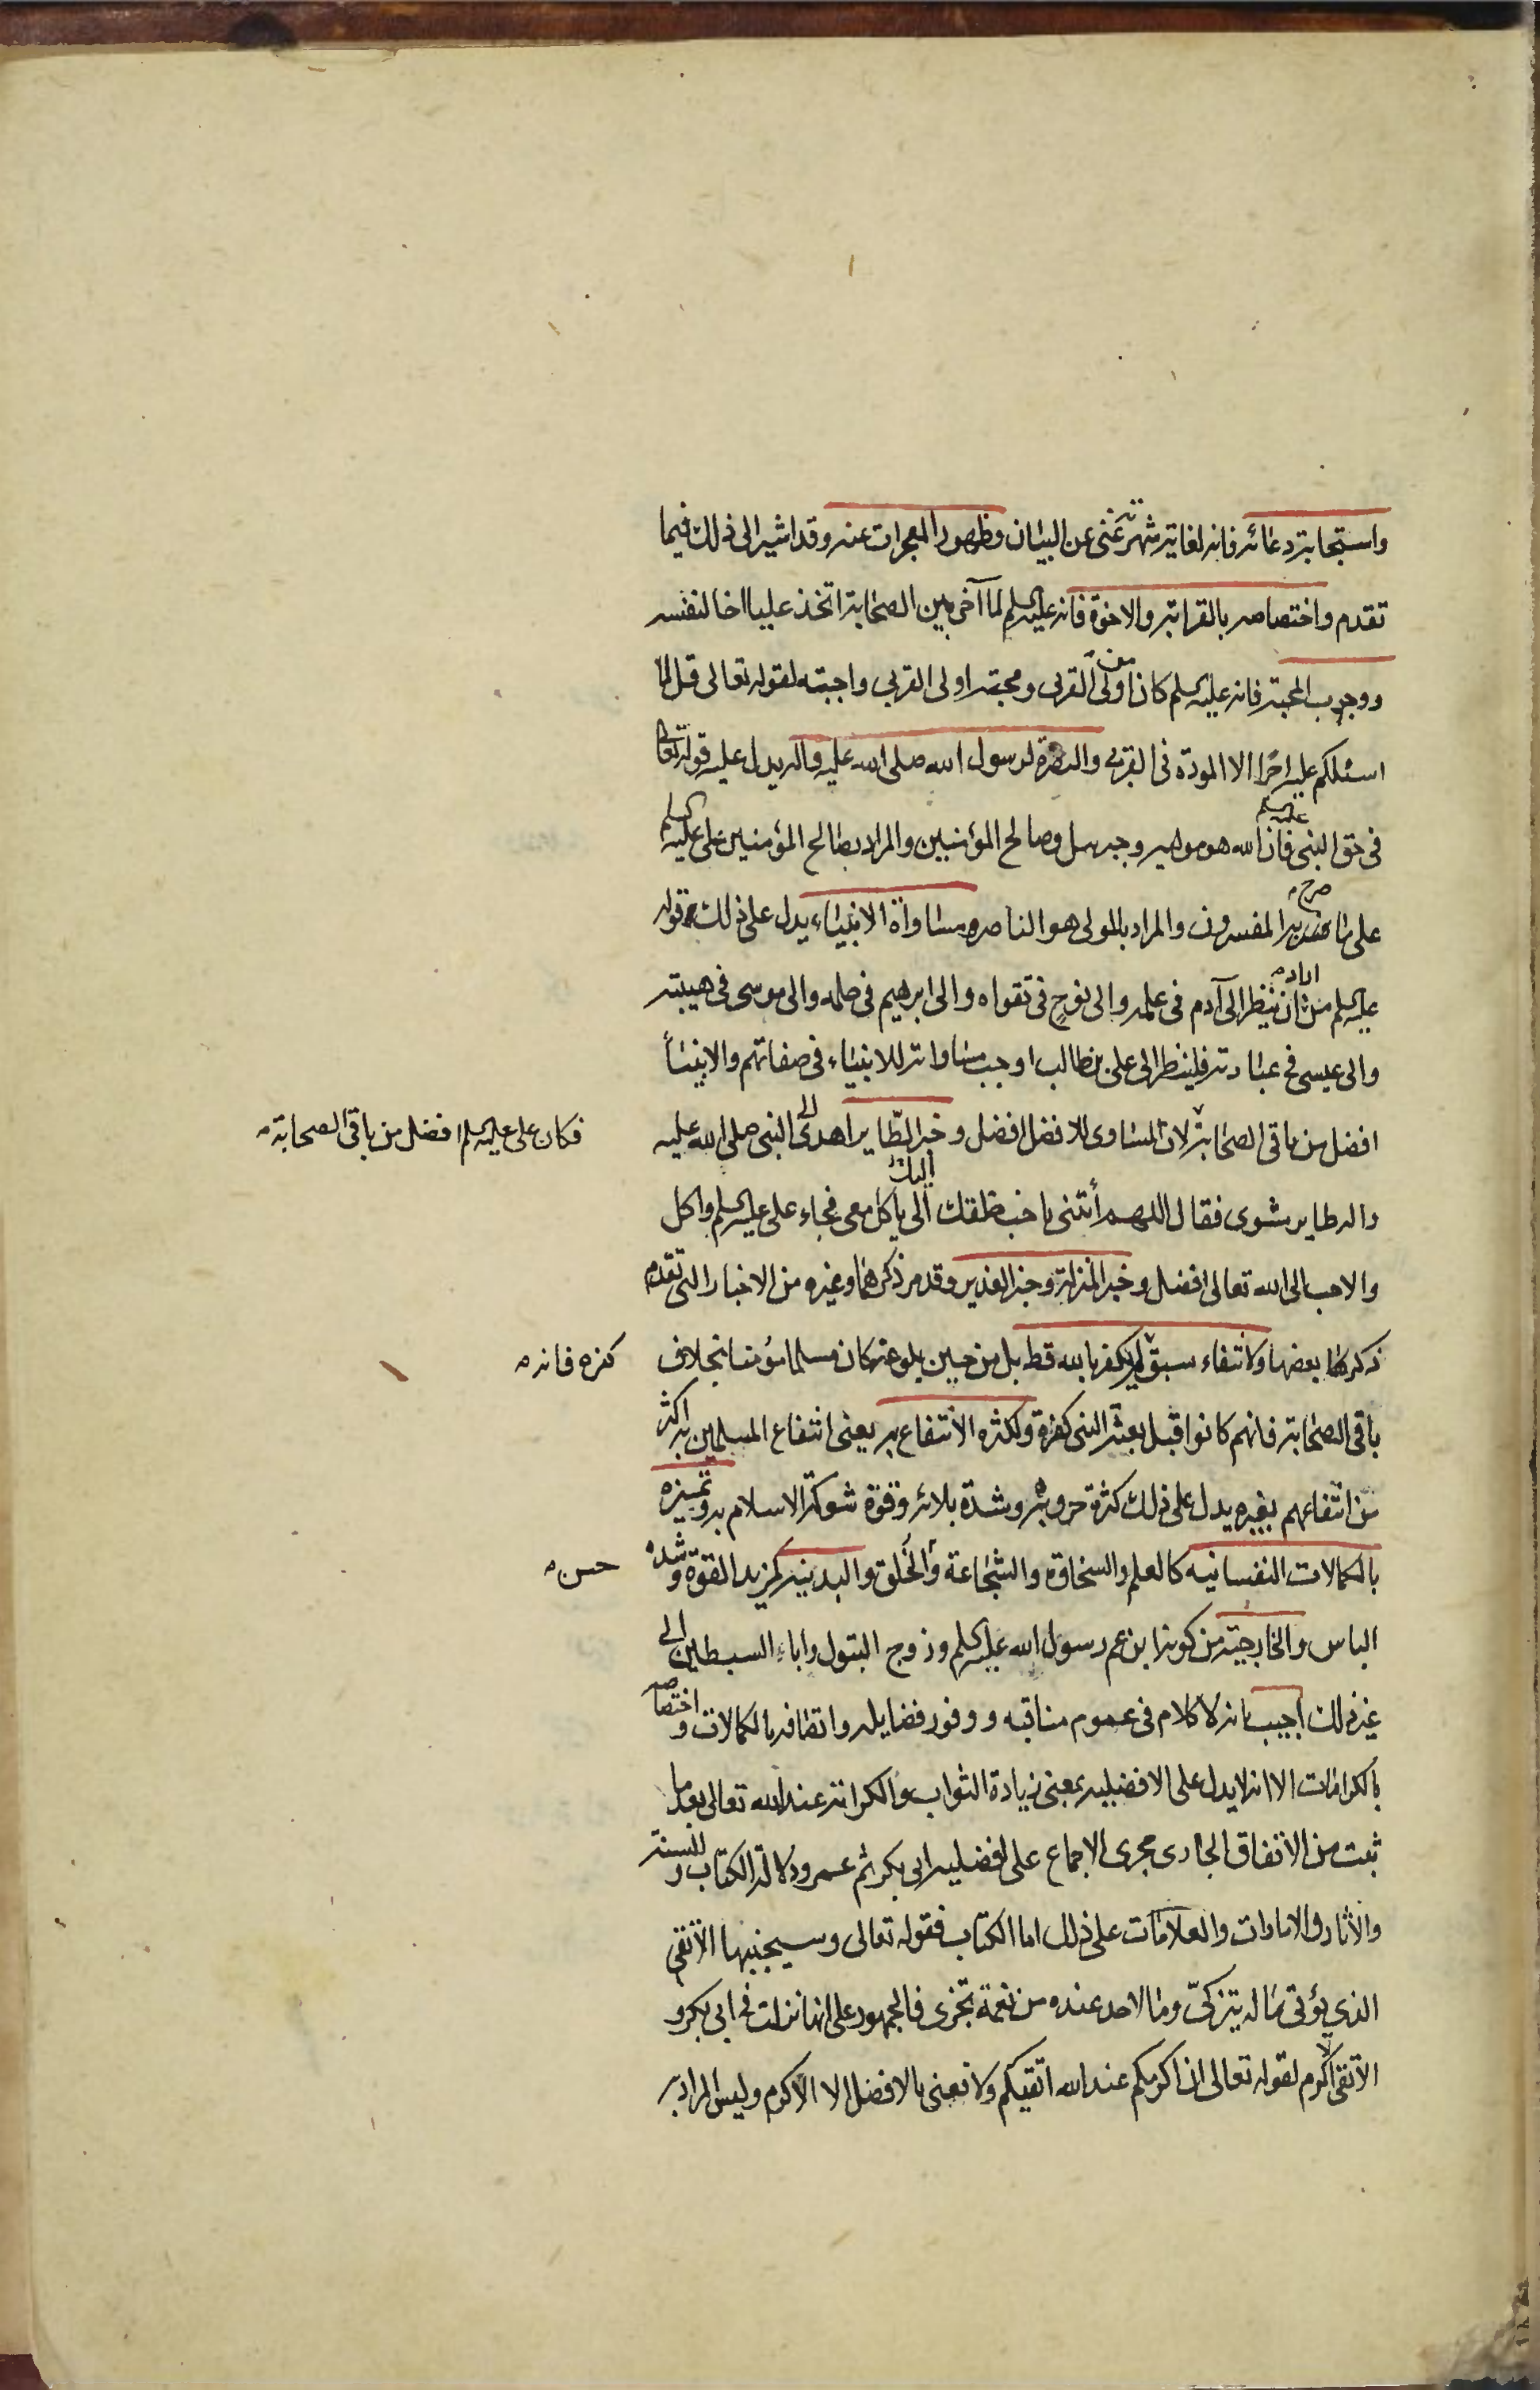 واستجابة دعائه فانه لغاية شهرته غنى عن البيان وظهور المعجزات عنه وقد اشير الى ذلك فيما
تقدم واختصاصه بالقرابة والاخوة فانه عليه السلم لما آخى بين الصحابة اتخذ عليا اخا لنفسه
ووجوب المحبة فانه عليه السلم كان من اولى القربى ومحبة اولى القربى واجبته لقوله تعالى قل لا
اسئلكم عليه اجرا الا المودة فى القربى والنصرة لرسول الله صلى الله عليه واله يدل عليه قوله تعالى
فى حق النبى عليه السلم فان الله هو موليه وجبريل وصالح المؤمنين والمراد بصالح المؤمنين على عليه السلم
على ما صرح به المفسرون والمراد بالمولى هو الناصر ومساواة الانبياء يدل على ذلك قوله
عليه السلم من اراد ان ينظر الى آدم فى علمه والى نوح فى تقواه والى ابرهيم فى حلمه والى موسى فى هيبته
والى عيسى فى عبادته فلينظر الى على بن طالب اوجب مساواته للانبياء فى صفاتهم والانبيأ
افضل من باقى الصحابة لان المساوى للافضل افضل وخبر الطّاير اهدى الى النبى صلى الله عليه
فكان على عليه السلم افضل من باقى الصحابة
واله طاير مشوى فقال اللهم أئتنى باحب خلقك اليك الى ياكل معى فجاء على عليه السلم واكل
والاحب الى الله تعالى افضل وخبر المنزلة وخبر الغدير وقد مر ذكرهما وغيره من الاخبار التى تقدم
ذكر بعضها ولانتفاء سبق لم يكفر بالله قط بل من حين بلوغه كان مسلما مؤمنا بخلاف
كفره فانه
باقى الصحابة فانهم كانوا قبل بعثة النبى كفرة ولكثره الانتفاع به يعنى انتفاع المسلمين به اكثر
من انتفاعهم بغيره يدل على ذلك كثرة حروبه وشدة بلائه وقوة شوكة الاسلام به وتميزه
بالكمالات النفسانيه كالعلم والسخاوه والشجاعة والخُلق والبدنيه كمزيد القوة وشده
حسن
الباس والخارجية من كونه ابن عم رسول الله عليه السلم وزوج البتول واباء السبطين الى
غير ذلك اجيب بانه لا كلام فى عموم مناقبه ووفور فضايله واتصافه بالكمالات واختصاصه
بالكرامات الا انه لا يدل على الافضليه بمعنى زيادة الثواب والكرامة عند الله تعالى بعد ما
ثبت من الاتفاق الجارى مجرى الاجماع على افضليه ابى بكر ثم عمر ودلالة الكتاب والسنة
والأثار والامارات والعلامات على ذلك اما الكتاب فقوله تعالى وسيجنبها الاتقى
الذى يؤتى ماله يتزكىّ وما لاحد عنده من نعمة تجزى فالجمهور على انها نزلت فى ابى بكر و
الاتقى اكرم لقوله تعالى ان اكرمكم عند الله اتقيكم ولا نعنى بالافضل الا الاكرم وليس المراد به